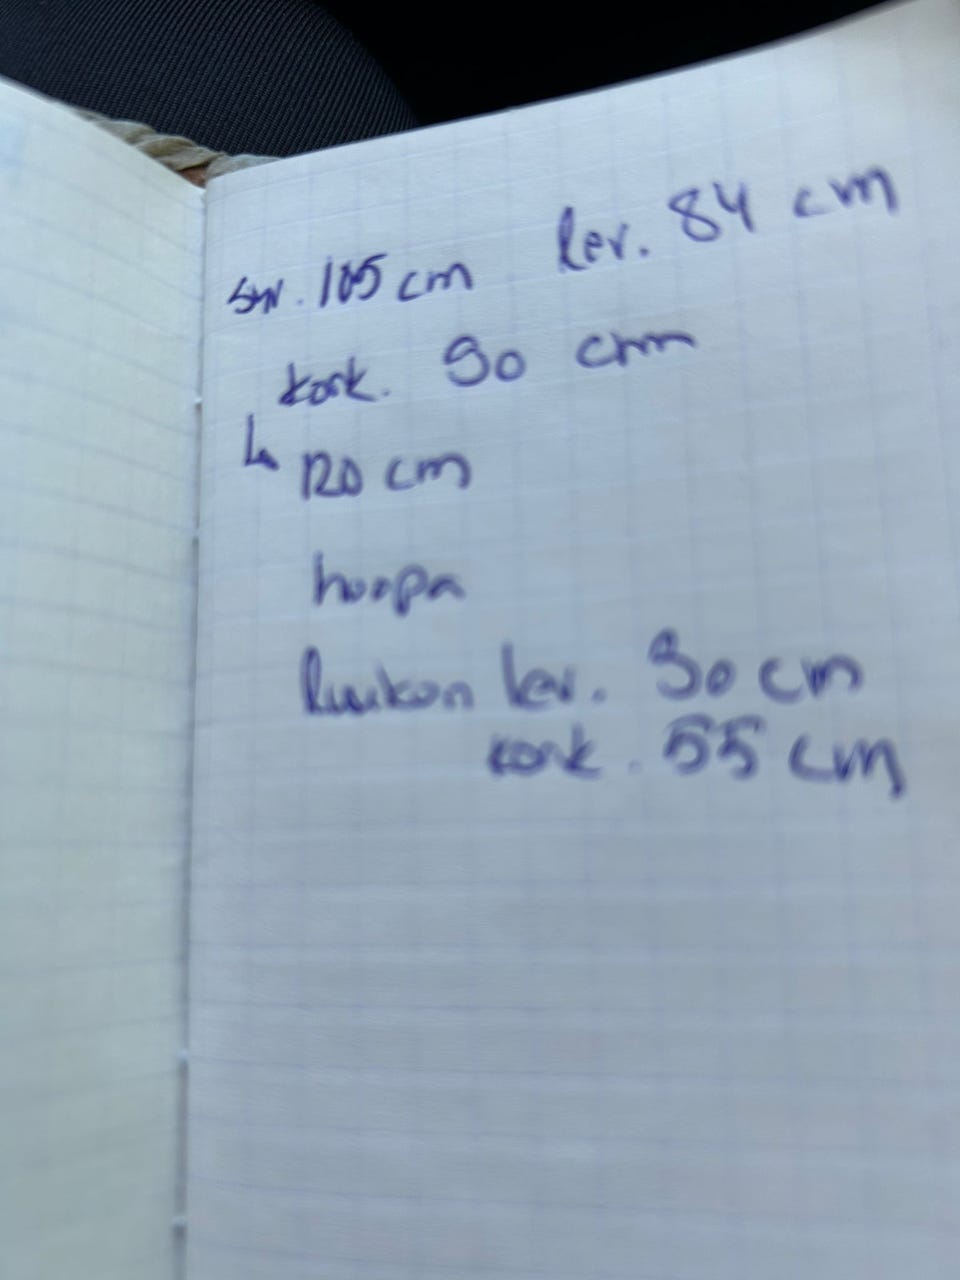 syv. 105 cm lev. 84 cm
kork. 90 cm
↳ 120 cm
lev. 90 cm
kork. 55 cm